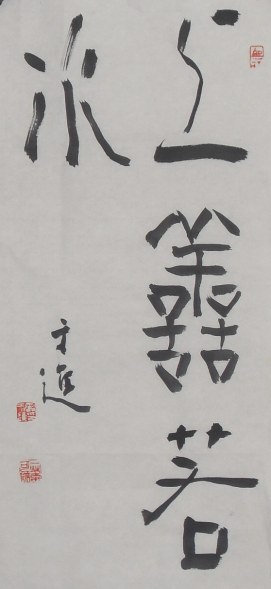 上善若
水
守進